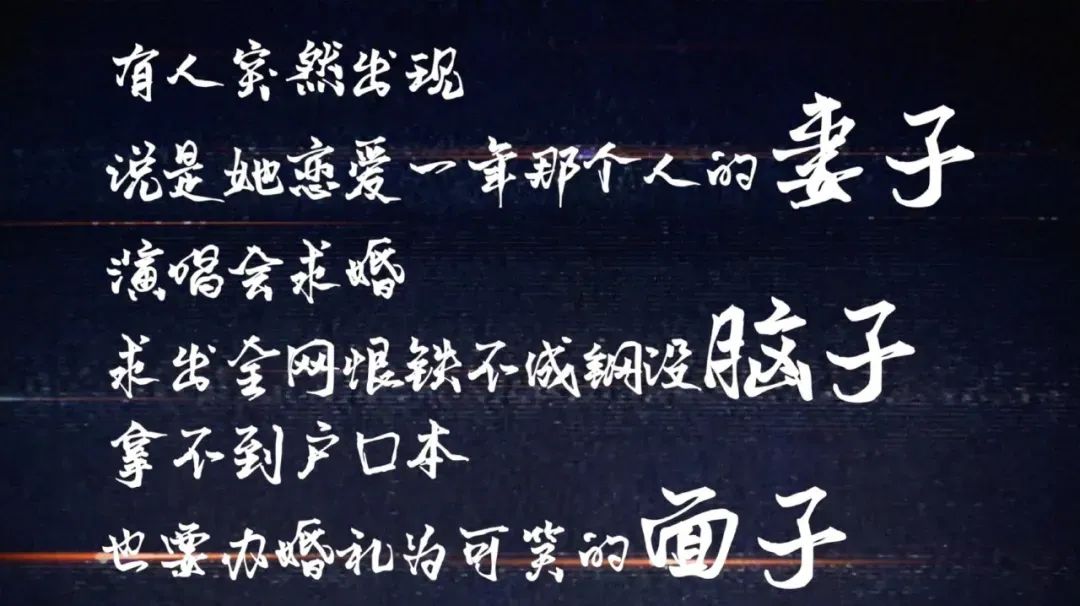 有人突然出现
说是她恋爱一年那个人的妻子
演唱会求婚
求出全网恨铁不成钢没脑子
拿不到户口本
也要办婚礼为可笑的面子